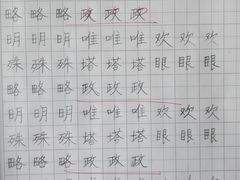 略略略政政政
明明明唯唯唯欢欢欢
殊殊殊塔塔塔眼眼眼
略略略政政政
明明明唯唯唯欢欢欢
殊殊殊塔塔塔眼眼眼
略略略政政政